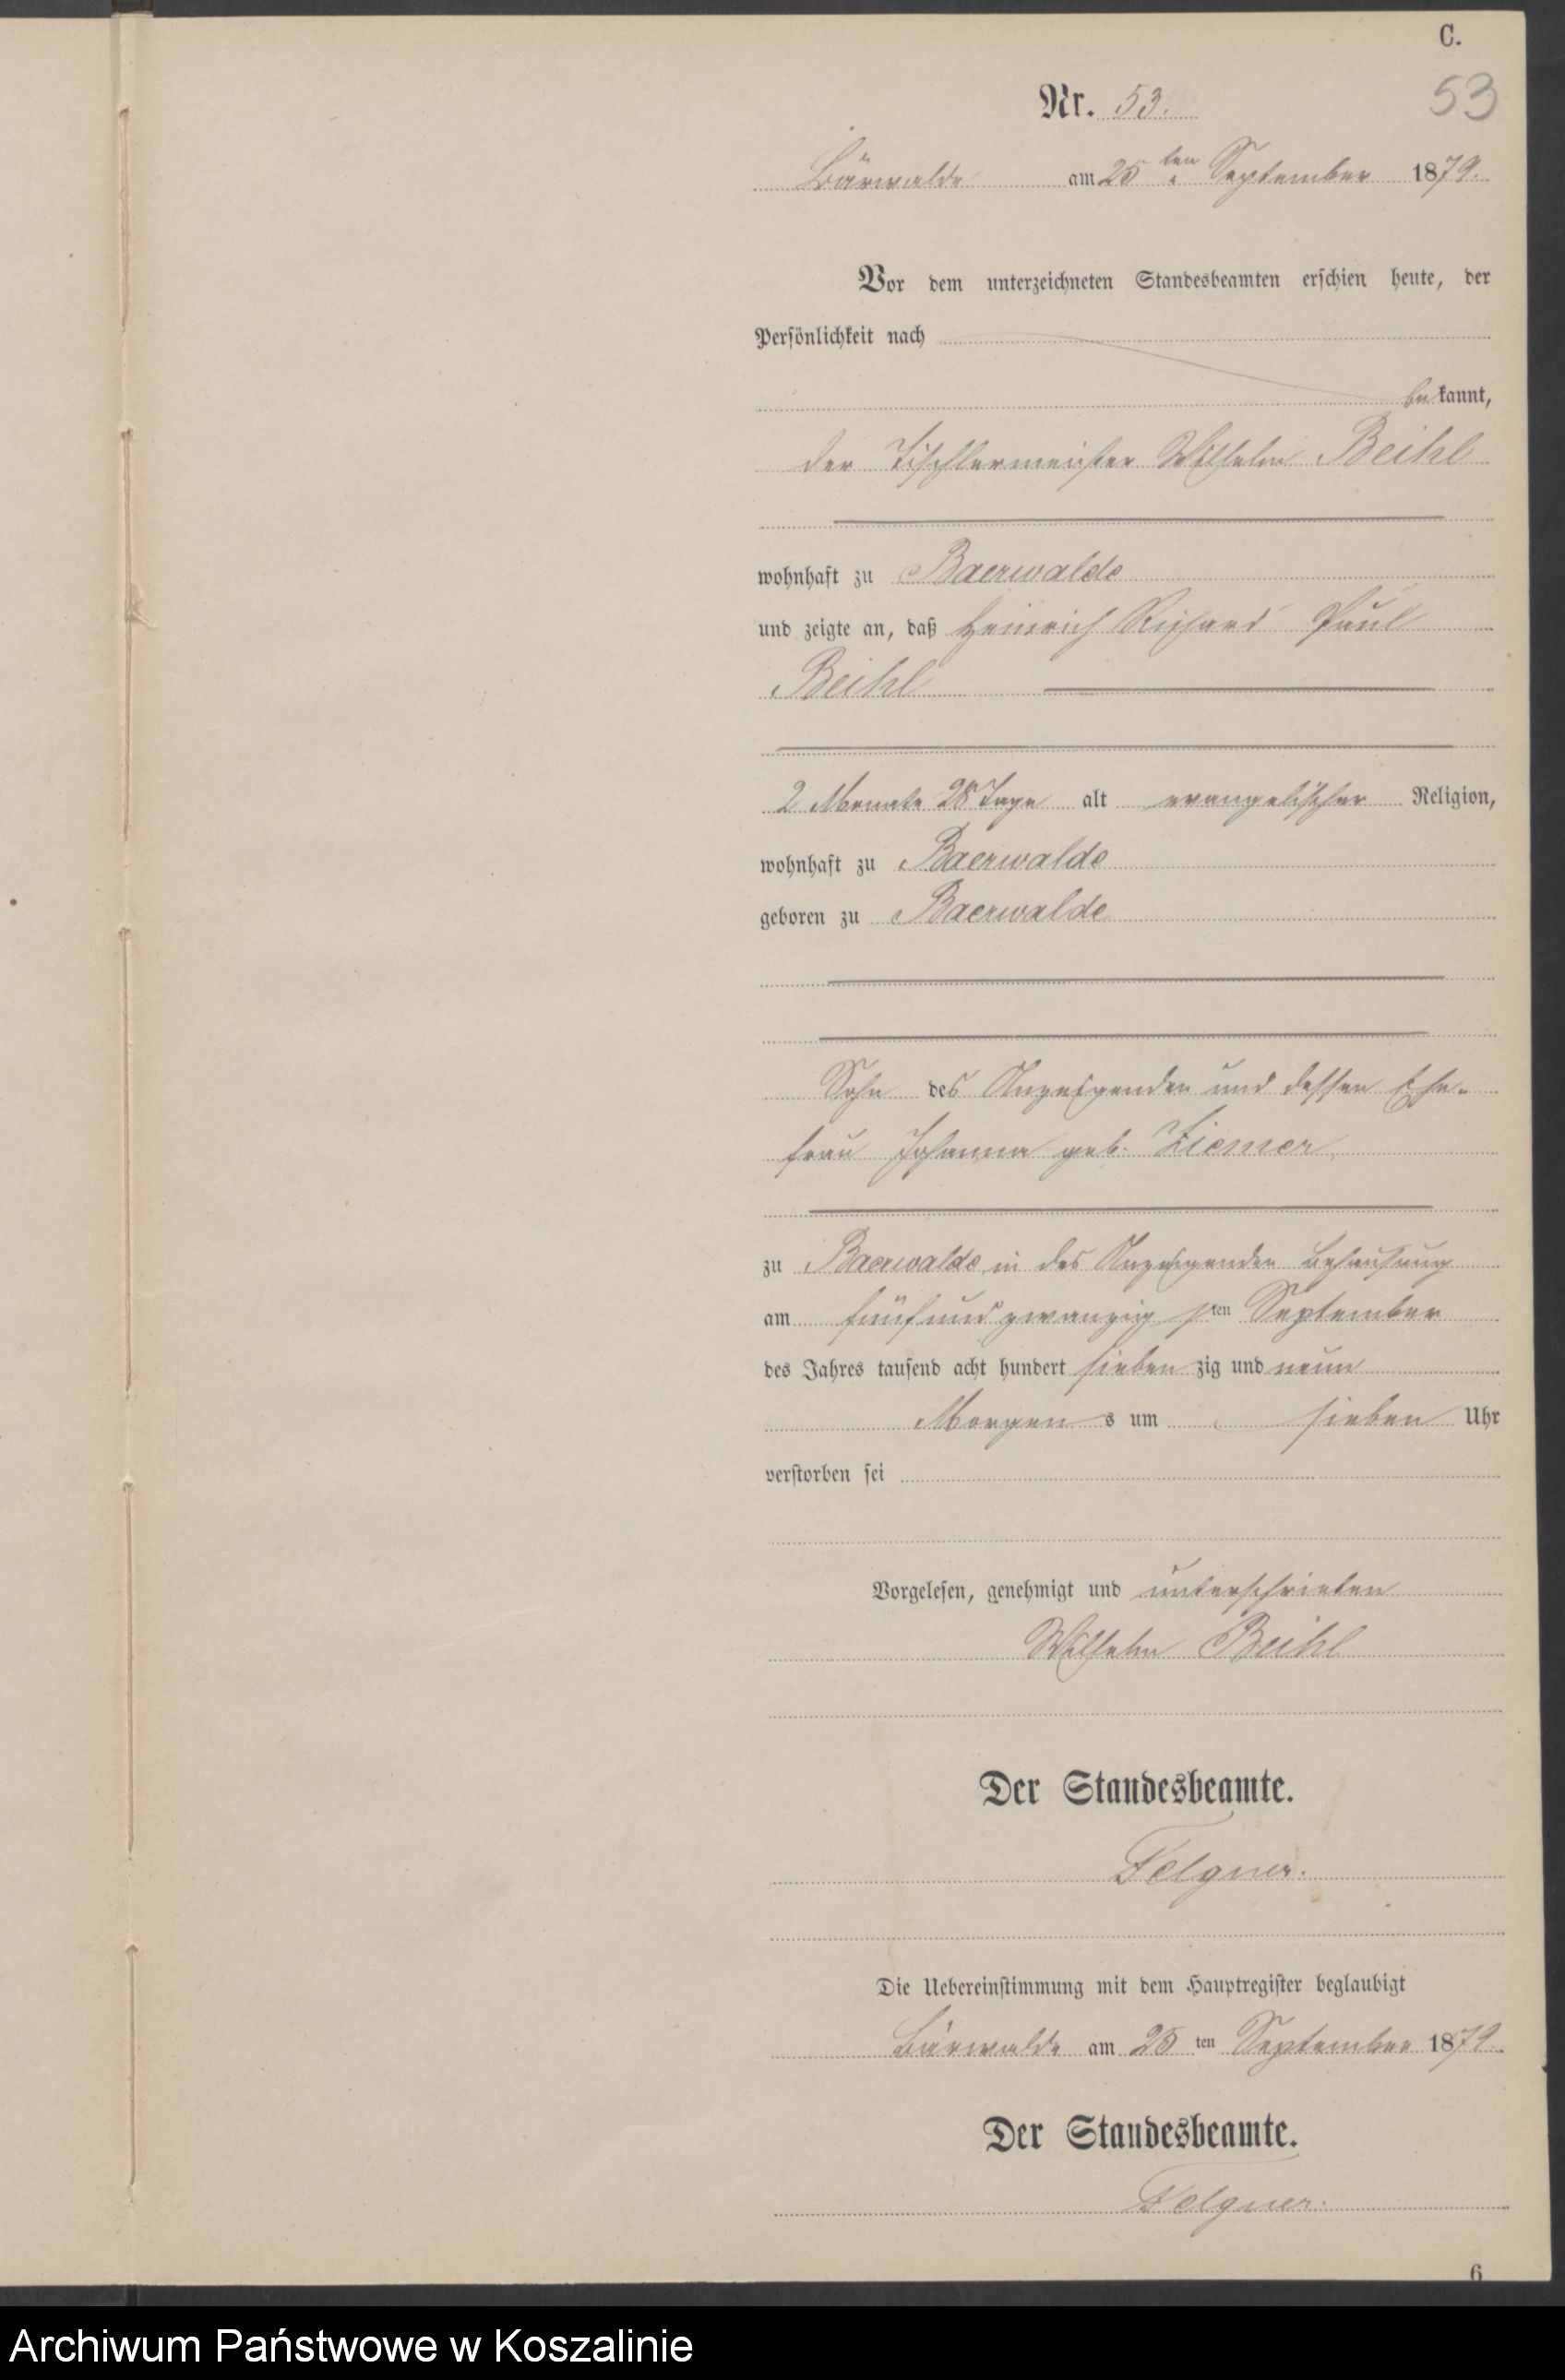 C.
Nr. 53.
53
Bärwalde am 25 ten September 1879.
Vor dem unterzeichneten Standesbeamten erschien heute, der
Persönlichkeit nach
bekannt,
der Tischlermeister Wilhelm Beihl
wohnhaft zu Baerwalde
und zeigte an, daß Heinrich Richard Paul
Beihl
2 Monate 28 Tage alt evangelischer Religion,
wohnhaft zu Baerwalde
geboren zu Baerwalde
Sohn des Anzeigenden und dessen Ehe-
frau Johanna geb. Ziemer
zu Baerwalde in des Anzeigenden Behausung
am fünfundzwanzigsten September
des Jahres tausend acht hundert siebenzig und neun
Morgens um sieben Uhr
verstorben sei
Vorgelesen, genehmigt und unterschrieben
Wilhelm Beihl
Der Standesbeamte.
Felgner.
Die Uebereinstimmung mit dem Hauptregister beglaubigt
Bärwalde am 25 ten September 1879.
Der Standesbeamte.
Felgner.
6
Archiwum Państwowe w Koszalinie